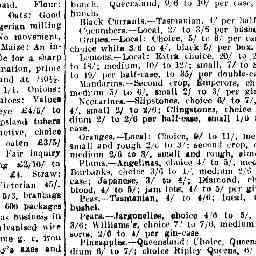 oard. Flour:
out. Good
gerian milling
No movement,
Maize: An in-
ble for a sharp
ration, prime
and at /10½-
1/1. Onions:
atoes: Values
eye £4/5/ to
active, choice
oaten £3/5/
Fair inquiry
£4. Straw:
Victorian 45/.
5/3, brankage
606 packages
as business in
alvanised wire
me g. c. iron
y's axes and
bunch. Queensland, 9/6 to 10/ per case.
bunch.
Black Currants.—Tasmanian, 4/ per half
Cucumbers.—Local, 2/ to 3/6 per bushel
Grapes.—Local: Choice, 5/ to 6/ per
choice white 3/6 to 4/, black 5/ per box.
Lemons.—Local: Extra choice, 20/
to 18/; medium, 10/ to 12/; small, 7/ to
to 19/ per half-case, to 35/ per double-ca
Mandarins.—Second crop, Emperors,
medium 3/ to 4/, small 2/ to 3/ per
Nectarines.—Slipstones, choice 6/ to 7/
4/, small 2/ to 2/6; Clingstones, choice
dium 2/ to 2/6 per half-case, small 1/6
case.
Oranges.—Local: Choice, 9/ to 11/, me
small and rough 2/6 to 3/; second crop,
medium 2/6 to 3/, small and rough,
Plums.—Angelinas, choice 4/ to 5/, med
Burbanks, choice 3/6 to 4/, medium 2/6
case; Japanese, 3/ to 4/; Diamond, ch
blood, 4/ to 5/; jam lots, 4/ to 5/ per
Peas.—Tasmanian, 4/ to 4/6; local,
bushel.
Pears.—Jargonelles, choice 4/6 to 5/,
3/6; William's, choice 7/ to 7/6, medium
sorts, 2/6 to 4/ per gin-case
Pineapples.—Queensland: Choice, Queens
dium 6/ to 7/; choice Ripley Queens, 6/